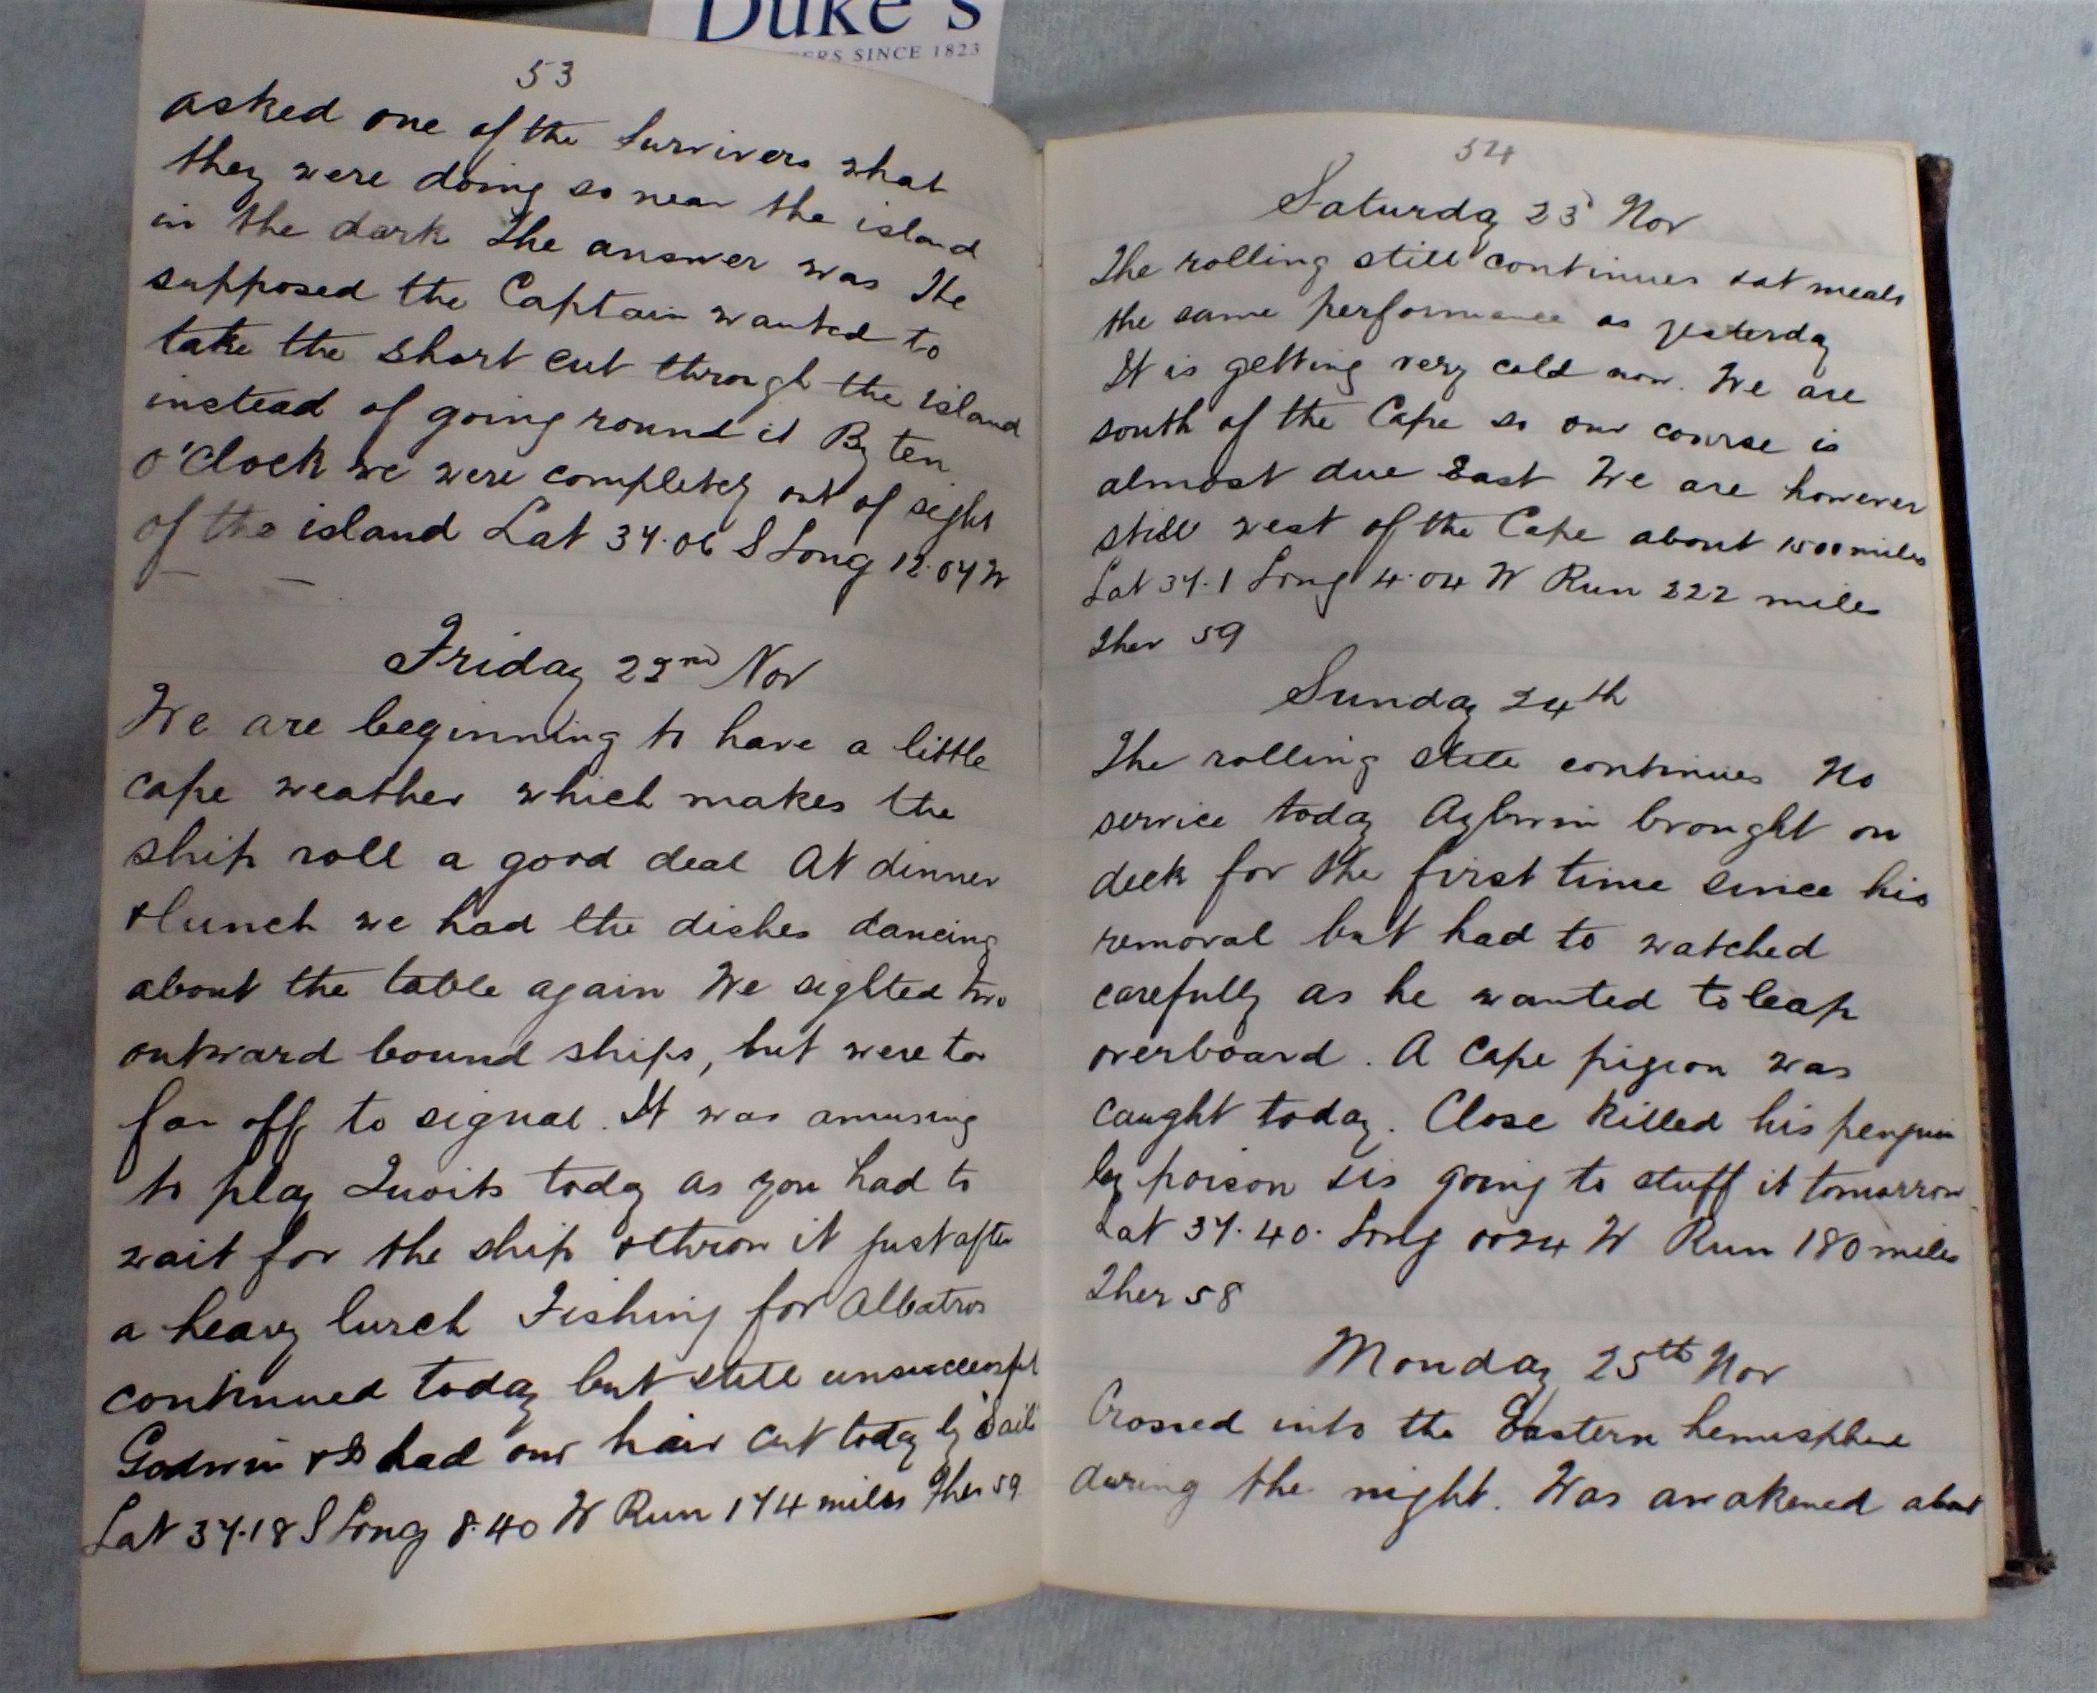 Duke's
ERS SINCE 1823
53
asked one of the Survivers what
they were doing so near the island
in the dark The answer was He
supposed the Captain wanted to
take the short cut through the island
instead of going round it By ten
o'clock we were completely out of sight
of the island Lat 37.06 S Long 12.07 W
Friday 22nd Nov
We are beginning to have a little
cape weather which makes the
ship roll a good deal At dinner
& lunch we had the dishes dancing
about the table again We sighted two
outward bound ships, but were to
far off to signal. It was amusing
to play Quoits today as you had to
wait for the ship & throw it just after
a heavy lurch Fishing for Albatros
continued today but still unsuccessful
Godwin & I had our hair cut today by
Lat 37.18 S Long 8.40 W Run 174 miles Ther 59
54
Saturday 23 Nov
The rolling still continues & at meals
the same performance as yesterday
It is getting very cold now. We are
south of the Cape so our course is
almost due East We are however
still west of the Cape about 1500 miles
Lat 37.1 Long 4.04 W Run 222 miles
Ther 59
Sunday 24th
The rolling still continues No
service today brought on
deck for the first time since his
removal but had to watched
carefully as he wanted to leap
overboard. A Cape pigeon was
caught today. Close killed his penguin
by poison & is going to stuff it tomorrow
Lat 37.40. Long 0024 W Run 180 miles
Ther 58
Monday 25th Nov
Crossed into the Eastern hemisphere
during the night. Was awakened about